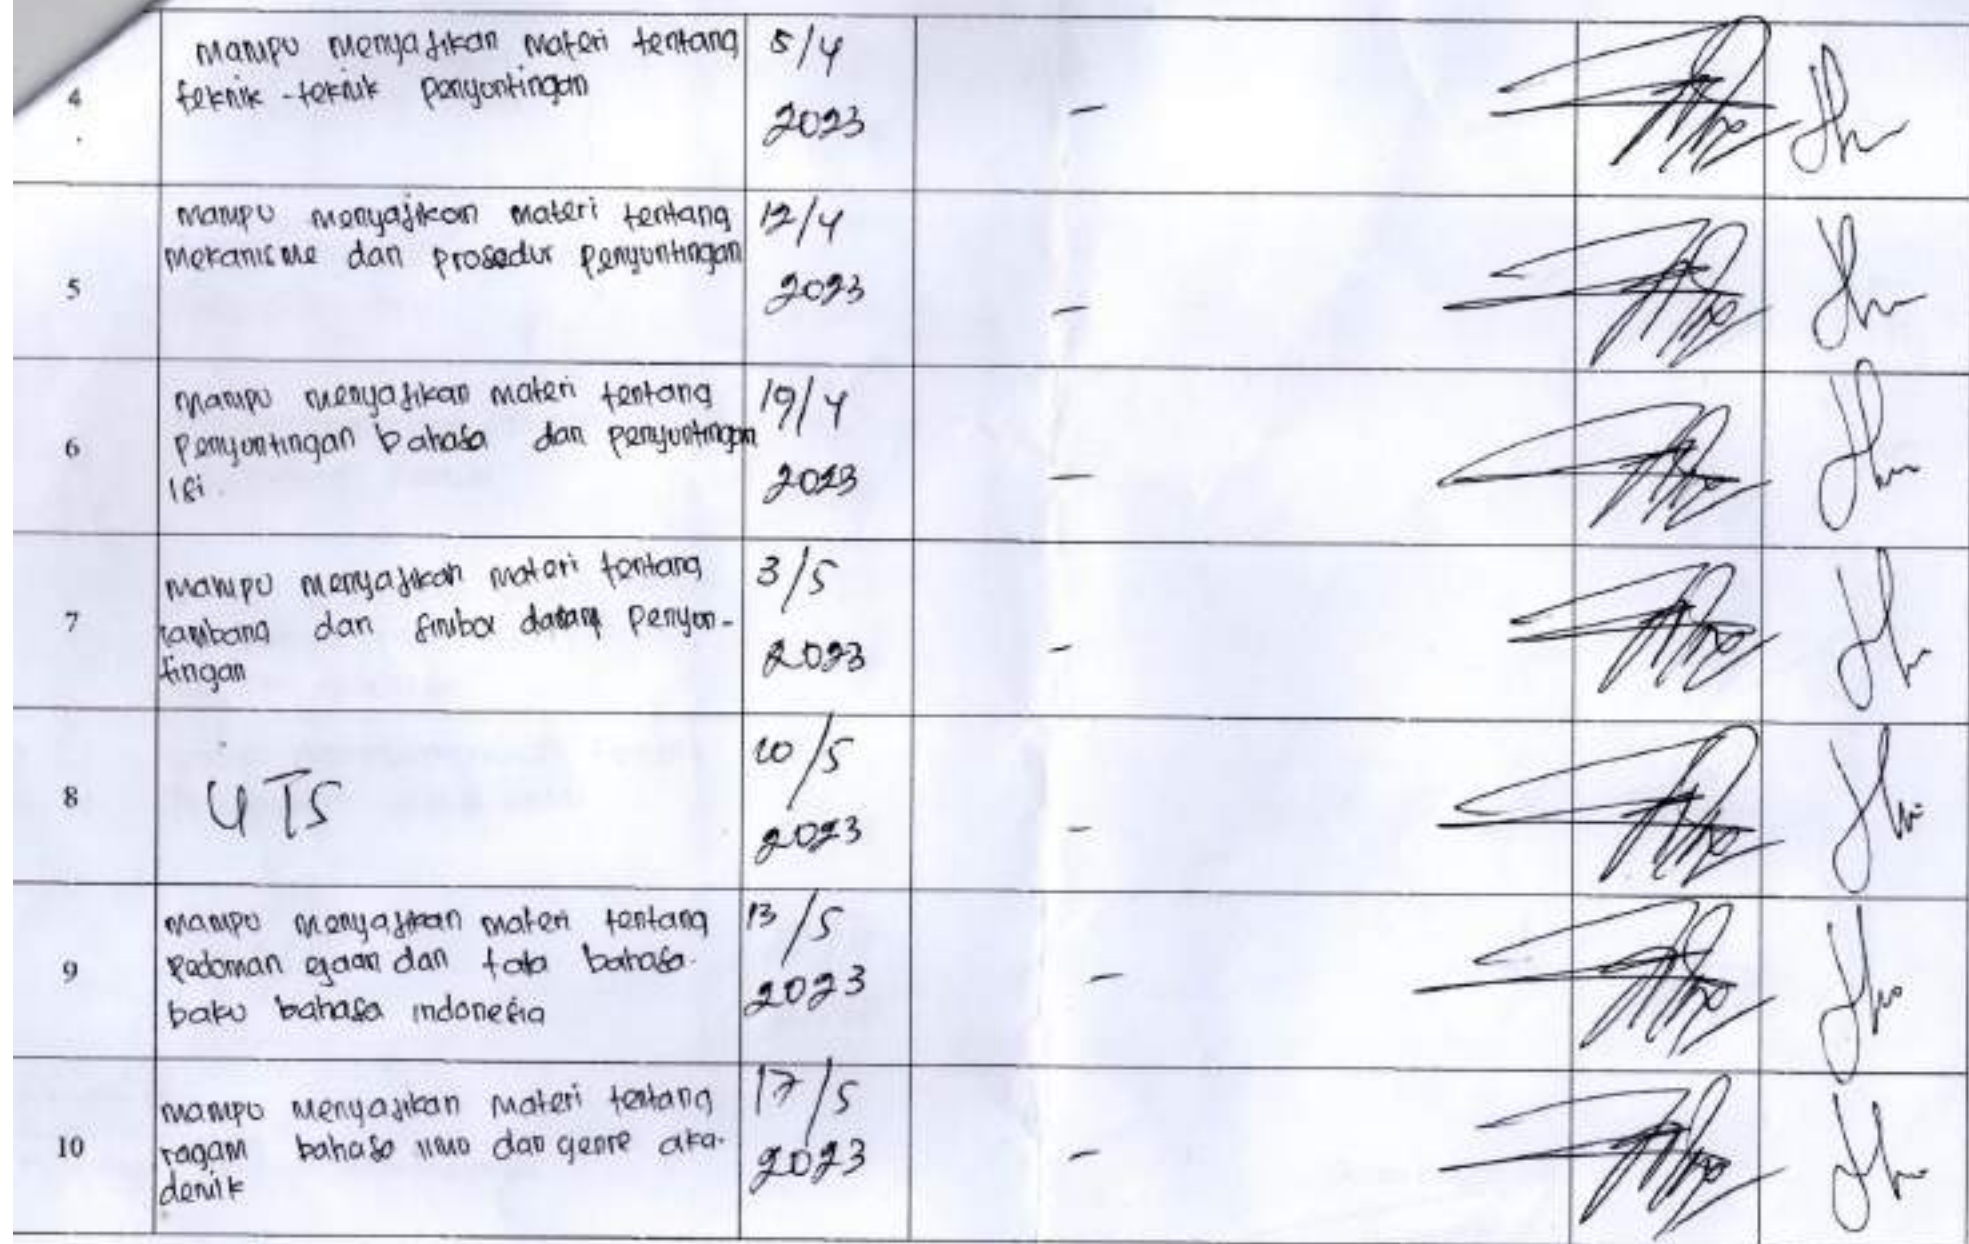 4
mampu menyajikan materi tentang
teknik-teknik penyuntingan
5/4
2023
-
5
mampu menyajikan materi tentang
mekanisme dan prosedur penyuntingan
12/4
2023
-
6
mampu menyajikan materi tentang
penyuntingan bahasa dan penyuntingan
isi.
19/4
2023
-
7
mampu menyajikan materi tentang
lambang dan simbol dalam penyun-
tingan
3/5
2023
-
8
UTS
10/5
2023
-
9
mampu menyajikan materi tentang
pedoman ejaan dan tata bahasa
baku bahasa indonesia
13/5
2023
-
10
mampu menyajikan materi tentang
ragam bahasa ilmu dan genre aka-
demik
17/5
2023
-